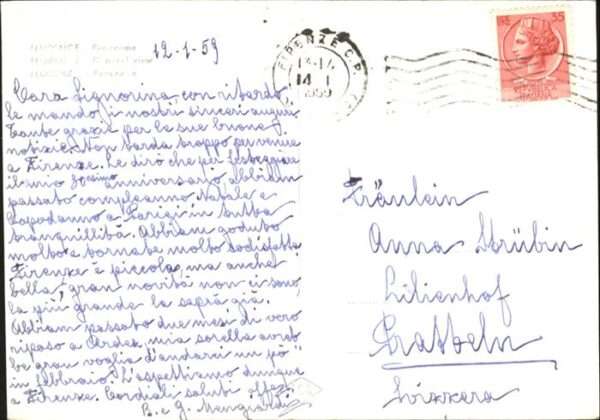 12-1-59
FIRENZE
14 I
1959
L. 35
Cara Signorina con ritardo
le mando i nostri sinceri auguri
tante grazie per la sua buona
notizia. Non tarda troppo per venire
a Firenze. Le dirò che per festeggiare
il mio 30esimo anniversario abbiam
passato compleanno, Natale e
Capodanno a Parigi in tutta
tranquillità. Abbiam goduto
molto e tornate molto sodisfatte
Firenze è piccola, ma anche
bella, gran novità non ci sono,
la più grande la saprà già.
Abbiam passato due mesi di vero
riposo a Ardea, mia sorella avreb
be gran voglia d'andarci un pò
in febbraio. L'aspettiamo dunque
a Firenze. Cordiali saluti
B. e G. Mangiardi
Fräulein
Anna Strübin
Lilienhof
Pratteln
Svizzera